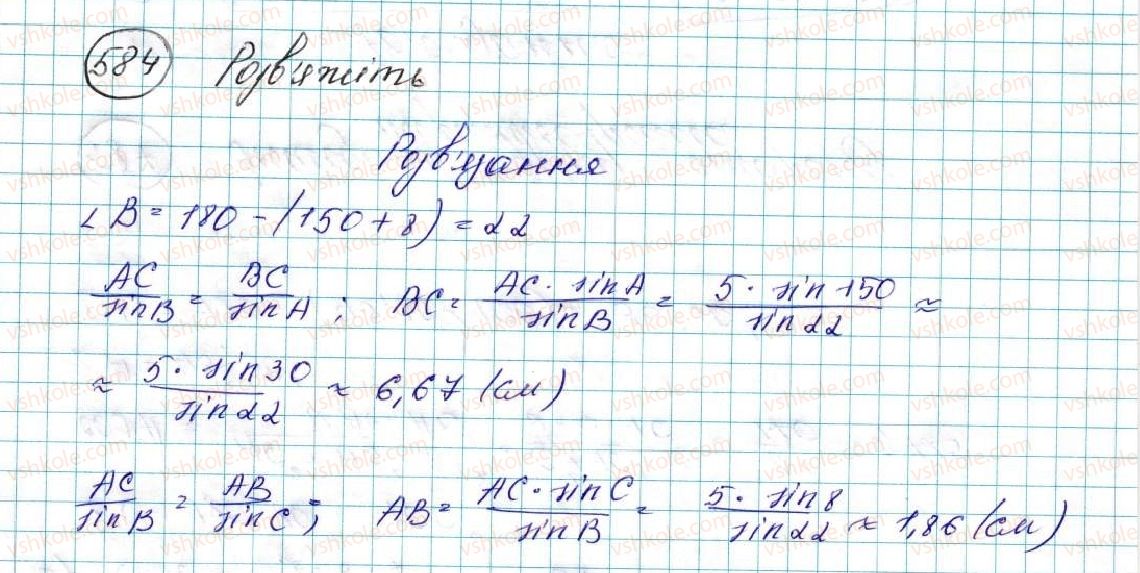 584 Розв'яжіть
Розв'язання
∠B = 180 - (150 + 8) = 22
AC/sinB = BC/sinA ; BC = AC · sinA/sinB = 5 · sin 150/sin 22 ≈
≈ 5 · sin 30/sin 22 ≈ 6,67 (см)
AC/sinB = AB/sinC ; AB = AC · sinC/sinB = 5 · sin 8/sin 22 ≈ 1,86 (см)
vshkole.com